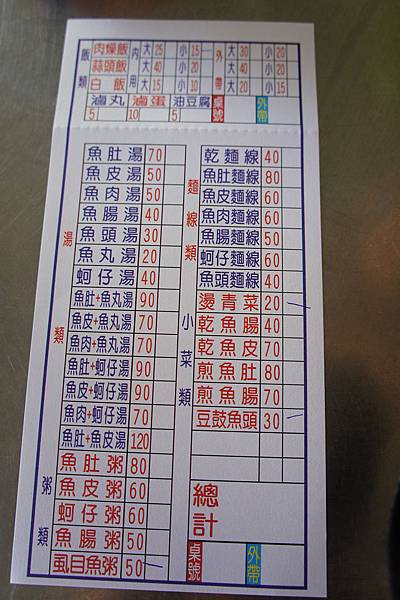 飯類
內用
外帶
肉燥飯 大 25 小 15 大 30 小 20
蒜頭飯 大 40 小 20 大 40 小 20
白飯 大 15 小 10 大 20 小 15
滷丸 5 滷蛋 10 油豆腐 5 桌號 外帶
湯類
魚肚湯 70
魚皮湯 50
魚肉湯 50
魚腸湯 40
魚頭湯 30
魚丸湯 20
蚵仔湯 40
魚肚+魚丸湯 90
魚皮+魚丸湯 70
魚肉+魚丸湯 70
魚肚+蚵仔湯 90
魚皮+蚵仔湯 90
魚肉+蚵仔湯 70
魚肚+魚皮湯 120
粥類
魚肚粥 80
魚皮粥 60
蚵仔粥 60
魚腸粥 50
虱目魚粥 50
麵線類
乾麵線 40
魚肚麵線 80
魚皮麵線 60
魚肉麵線 60
魚腸麵線 50
蚵仔麵線 60
魚頭麵線 40
小菜類
燙青菜 20
乾魚腸 40
乾魚皮 70
煎魚肚 80
煎魚腸 70
豆鼓魚頭 30
總計
桌號 外帶